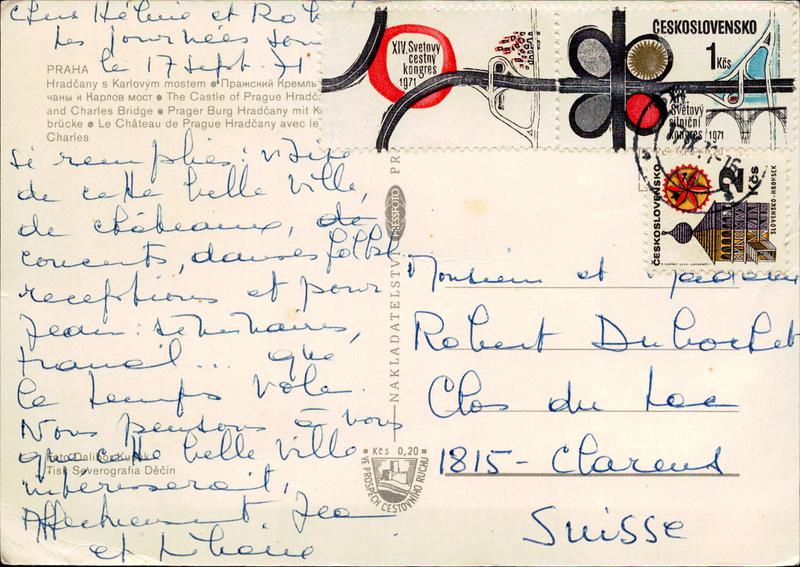 Chers Hélène et Rob
Les journées son
le 17 sept. 71
PRAHA
Hradčany s Karlovým mostem • Пражский Кремль
чаны и Карлов мост • The Castle of Prague Hradč
and Charles Bridge • Prager Burg Hradčany mit K
brücke • Le Château de Prague Hradčany avec le
Charles
si remplies : visite
de cette belle ville,
de châteaux, de
concerts, danses folkl.
receptions et pour
Jean : séminaires,
travail... que
le temps vole.
Nous pensons à vous
que cette belle ville
intéresserait,
Affectueusement Jea
et
Foto Dalibor Kusák
Tisk Severografia Děčín
NAKLADATELSTVÍ PRESSFOTO PR
Kčs 0,20
VE PROSPĚCH CESTOVNÍHO RUCHU
XIV. Světový
cestný
kongres
1971
ČESKOSLOVENSKO
1 Kčs
XIV.
Světový
silniční
kongres 1971
ČESKOSLOVENSKO
2 Kčs
SLOVENSKO-HRONSEK
Monsieur et Madame
Robert Dubochet
Clos du Lac
1815 - Clarens
Suisse